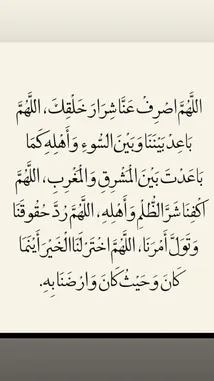 اللَّهُمَّ اصْرِفْ عَنَّا شِرَارَ خَلْقِكَ، اللَّهُمَّ
بَاعِدْ بَيْنَنَا وَبَيْنَ السُّوءِ وَأَهْلِهِ كَمَا
بَاعَدْتَ بَيْنَ الْمَشْرِقِ وَالْمَغْرِبِ، اللَّهُمَّ
اكْفِنَا شَرَّ الظُّلْمِ وَأَهْلِهِ، اللَّهُمَّ رُدَّ حُقُوقَنَا
وَتَوَلَّ أَمْرَنَا، اللَّهُمَّ اخْتَرْ لَنَا الْخَيْرَ أَيْنَمَا
كَانَ وَحَيْثُ كَانَ وَارْضَنَا بِهِ.